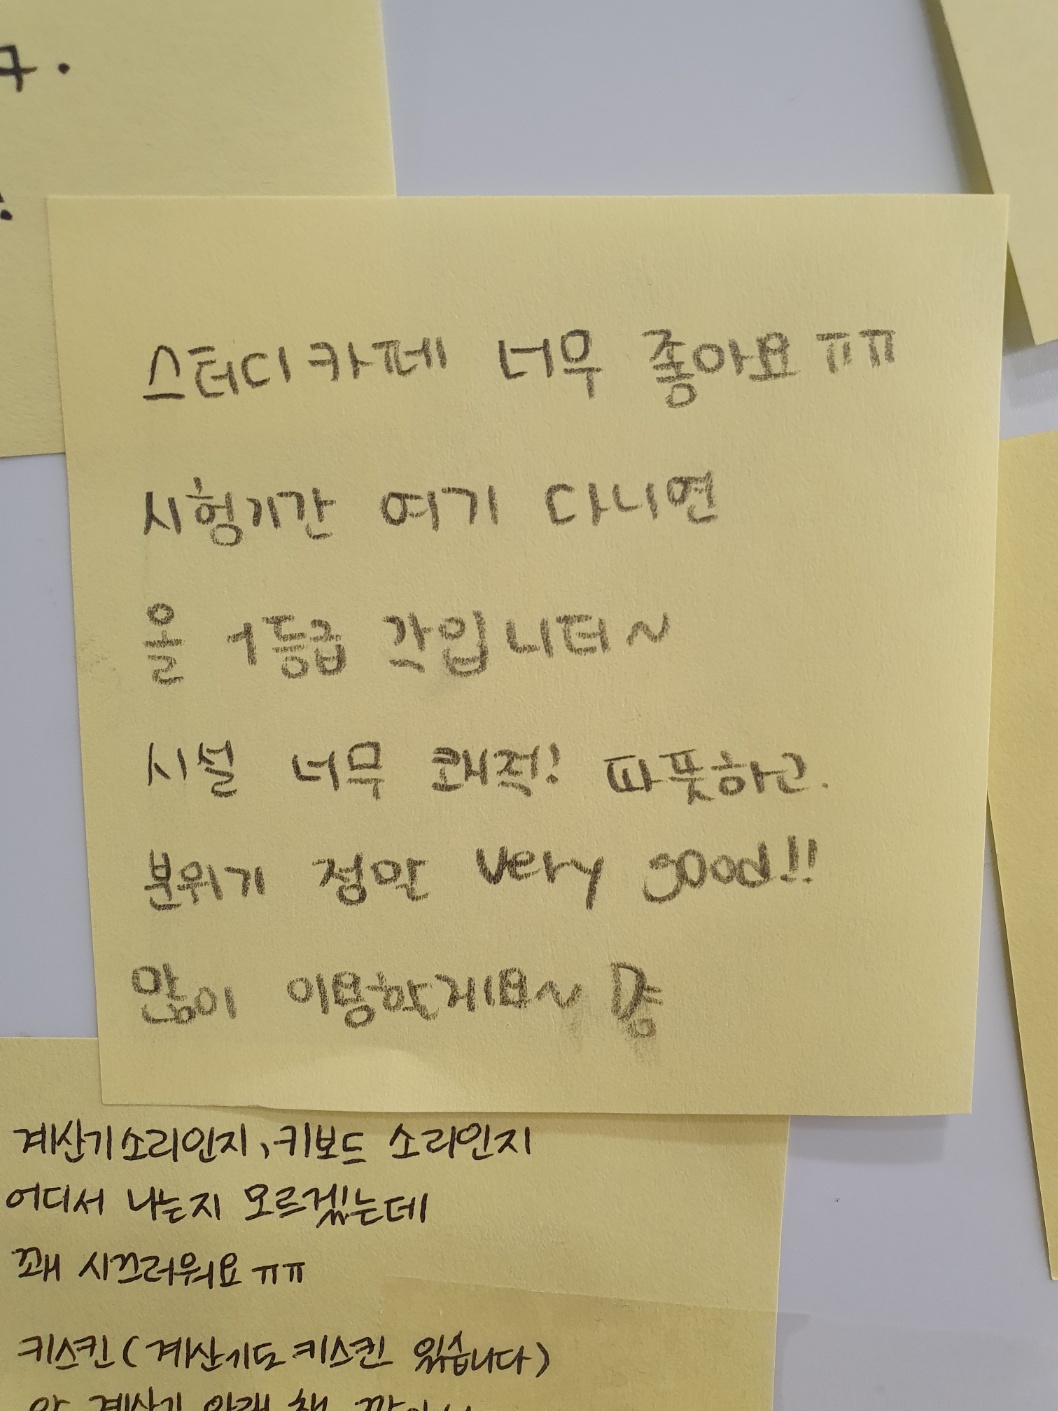 스터디카페 너무 좋아요ㅠㅠ
시험기간 여기 다니면
올 1등급 각입니더~
시설 너무 쾌적! 따뜻하고.
분위기 정말 very good!!
많이 이용할게요~
계산기소리인지, 키보드 소리인지
어디서 나는지 모르겠는데
꽤 시끄러워요ㅠㅠ
키스킨(계산기도 키스킨 있습니다)
계산기 아래 책